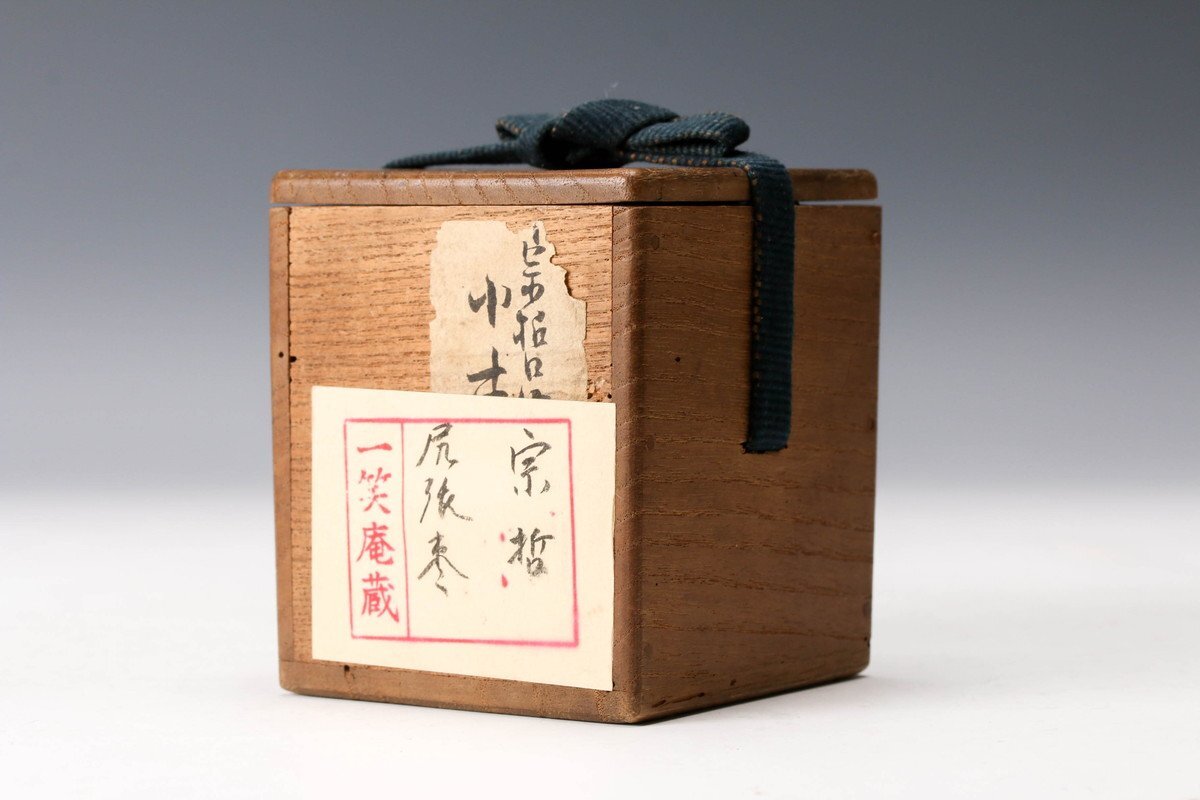 宗哲
小
宗哲
尻張棗
一笑庵蔵